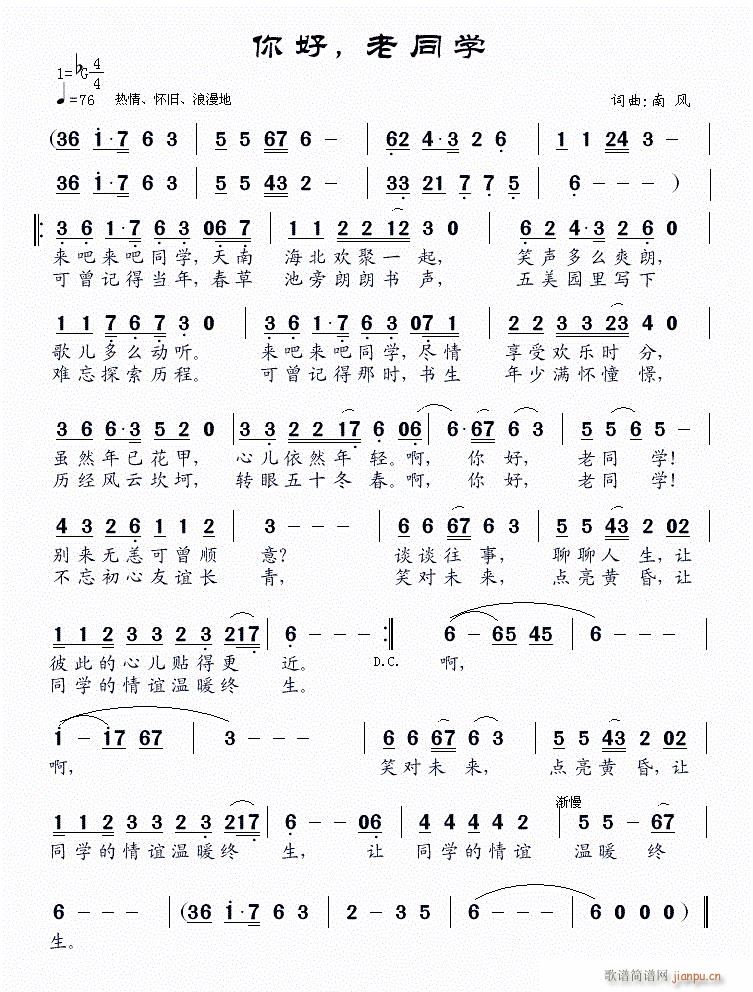 你好，老同学
1=♭G 4/4
♩=76 热情、怀旧、浪漫地 词曲:南 风
(36 i·7 6 3 | 5 5 67 6 - | 62 4·3 2 6 | 1 1 24 3 - |
36 i·7 6 3 | 5 5 43 2 - | 33 21 7 7 5 | 6 - - ) |
‖: 3 6 1·7 6 3 06 7 | 1 1 2 2 12 3 0 | 6 2 4·3 2 6 0 |
来吧来吧同学，天南 海北欢聚一起， 笑声多么爽朗，
可曾记得当年，春草 池旁朗朗书声， 五美园里写下
1 1 7 6 7 3 0 | 3 6 1·7 6 3 07 1 | 2 2 3 3 23 4 0 |
歌儿多么动听。 来吧来吧同学，尽情 享受欢乐时分，
难忘探索历程。 可曾记得那时，书生 年少满怀憧憬，
3 6 6·3 5 2 0 | 3 3 2 2 17 6 06 | 6·67 6 3 0 | 5 5 6 5 - |
虽然年已花甲， 心儿依然年轻。啊， 你好， 老同学！
历经风云坎坷， 转眼五十冬春。啊， 你好， 老同学！
4 3 2 6 1 1 2 | 3 - - - | 6 6 67 6 3 | 5 5 43 2 02 |
别来无恙可曾顺 意？ 谈谈往事， 聊聊人生，让
不忘初心友谊长 青， 笑对未来， 点亮黄昏，让
1 1 2 3 2 3 217 | 6 - - - :‖ 6 - 65 45 | 6 - - - |
彼此的心儿贴得更 近。 D.C. 啊，
同学的情谊温暖终 生。
i - i7 67 | 3 - - - | 6 6 67 6 3 | 5 5 43 2 02 |
啊， 笑对未来， 点亮黄昏，让
渐慢
1 1 2 3 2 3 217 | 6 - - 06 | 4 4 4 4 2 | 5 5 - 67 |
同学的情谊温暖终 生，让 同学的情谊 温暖终
6 - - - | (36 i·7 6 3 | 2 - 3 5 | 6 - - - | 6 0 0 0) ‖
生。
歌谱简谱网
jianpu.cn